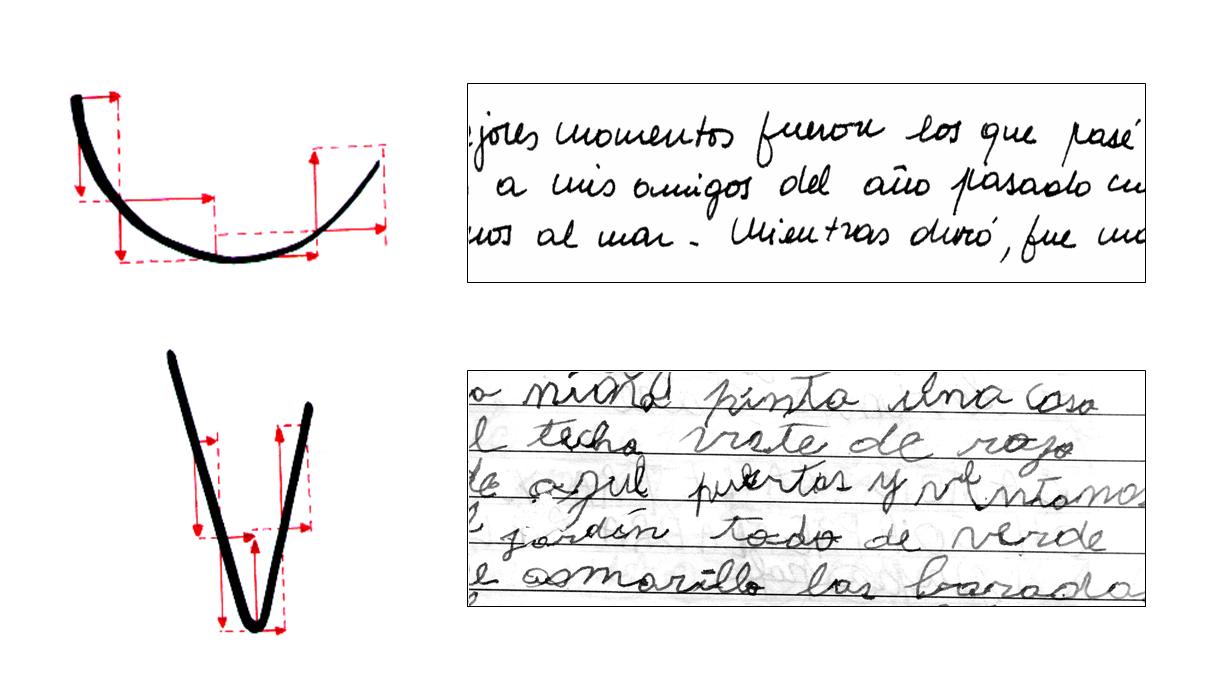 jores momentos fueron los que pasé
a mis amigos del año pasado cu
nos al mar. Mientras duró, fue mo
a niña pinta una casa
l techo viste de rojo
de azul puertas y
jardín todo de verde
e asmarillo las barada